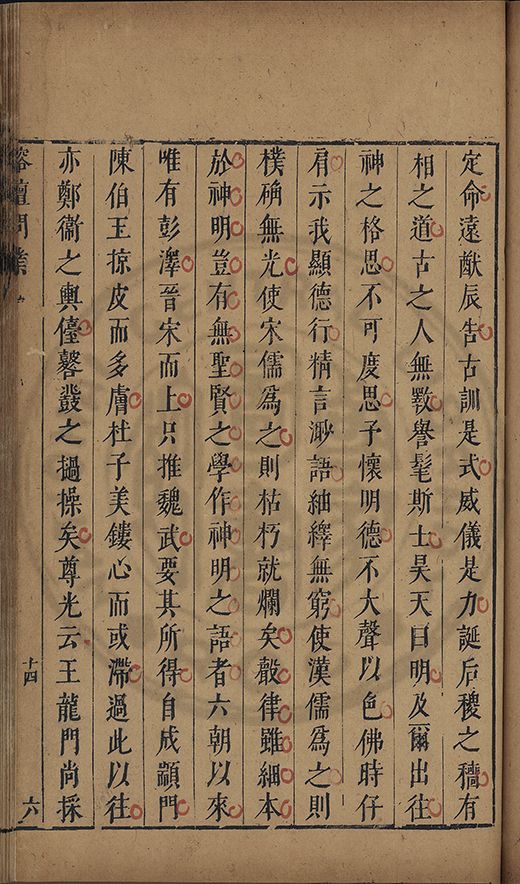 定命遠猷辰告古訓是式威儀是力誕后稷之穡有
相之道古之人無斁譽髦斯士昊天曰明及爾出往
神之格思不可度思予懷明德不大聲以色佛時仔
肩示我顯德行精言渺語紬繹無窮使漢儒爲之則
樸穉無光使宋儒爲之則枯朽就爛矣聲律雖細本
於神明豈有無聖賢之學作神明之語者六朝以來
唯有彭澤晉宋而上只推魏武要其所得自成顓門
陳伯玉掠皮而多膚杜子美鏤心而或滯過此以往
亦鄭衞之輿儓鼛鼓之撾操矣尊光云王龍門尚採
榕壇問業
十四
六